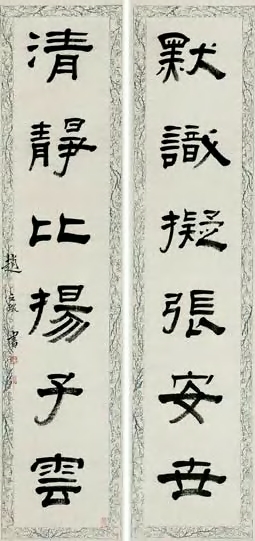 默識擬張安世
清靜比揚子雲
趙
書